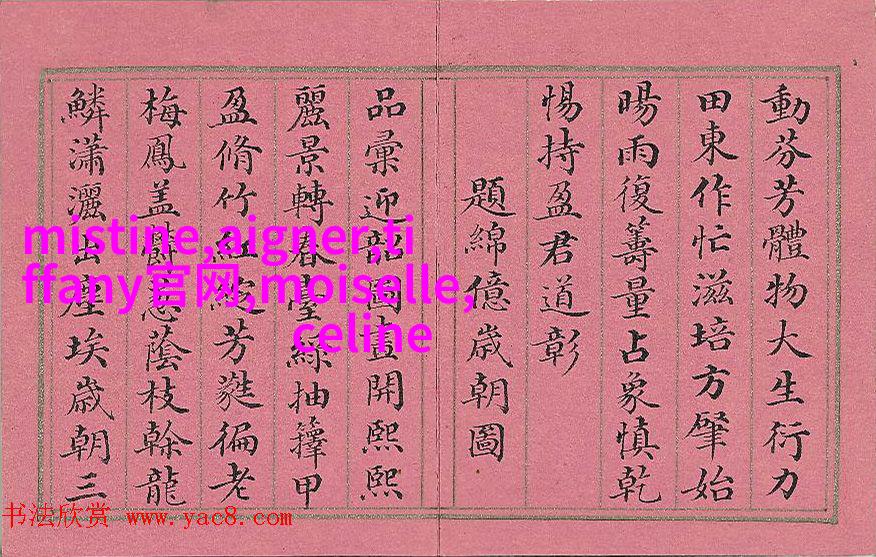 動芬芳體物大生衍力
田東作忙滋培方肇始
暘雨復籌量占象慎乾
惕持盈君道彰
題綿億歲朝圖
品彙迎韶圖畫開熙熙
麗景轉春臺綵抽籜甲
盈脩竹紅綻芳蕤徧老
梅鳳蓋慈蔭枝榦龍
鱗瀟灑出塵埃歲朝三
mistine,aigner,ti
ffany官网,moiselle,
celine
书法欣赏 www.yac8.com